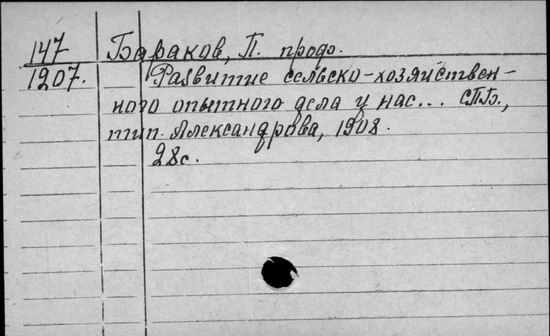 147 Бараков, П. проф.
1207. Развитие сельско-хозяйствен-
ного опытного дела у нас... СПБ.,
тип. Александрова, 1908.
28с.